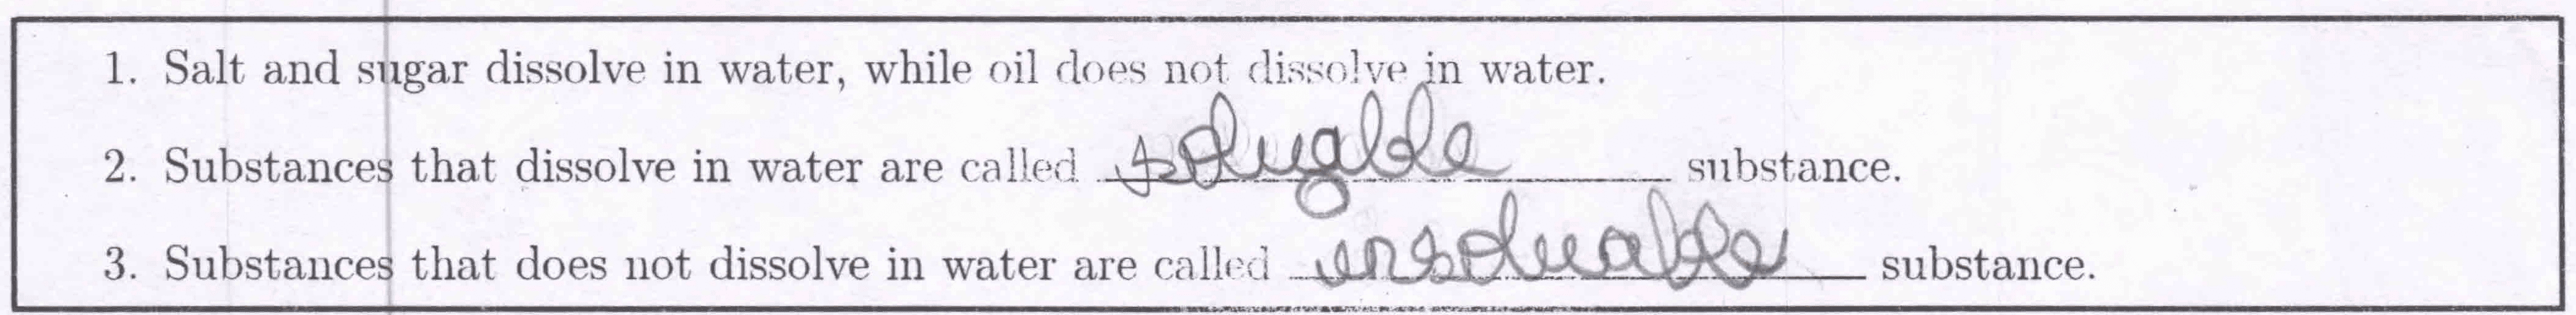 1. Salt and sugar dissolve in water, while oil does not dissolve in water.
2. Substances that dissolve in water are called soluable substance.
3. Substances that does not dissolve in water are called insoluable substance.